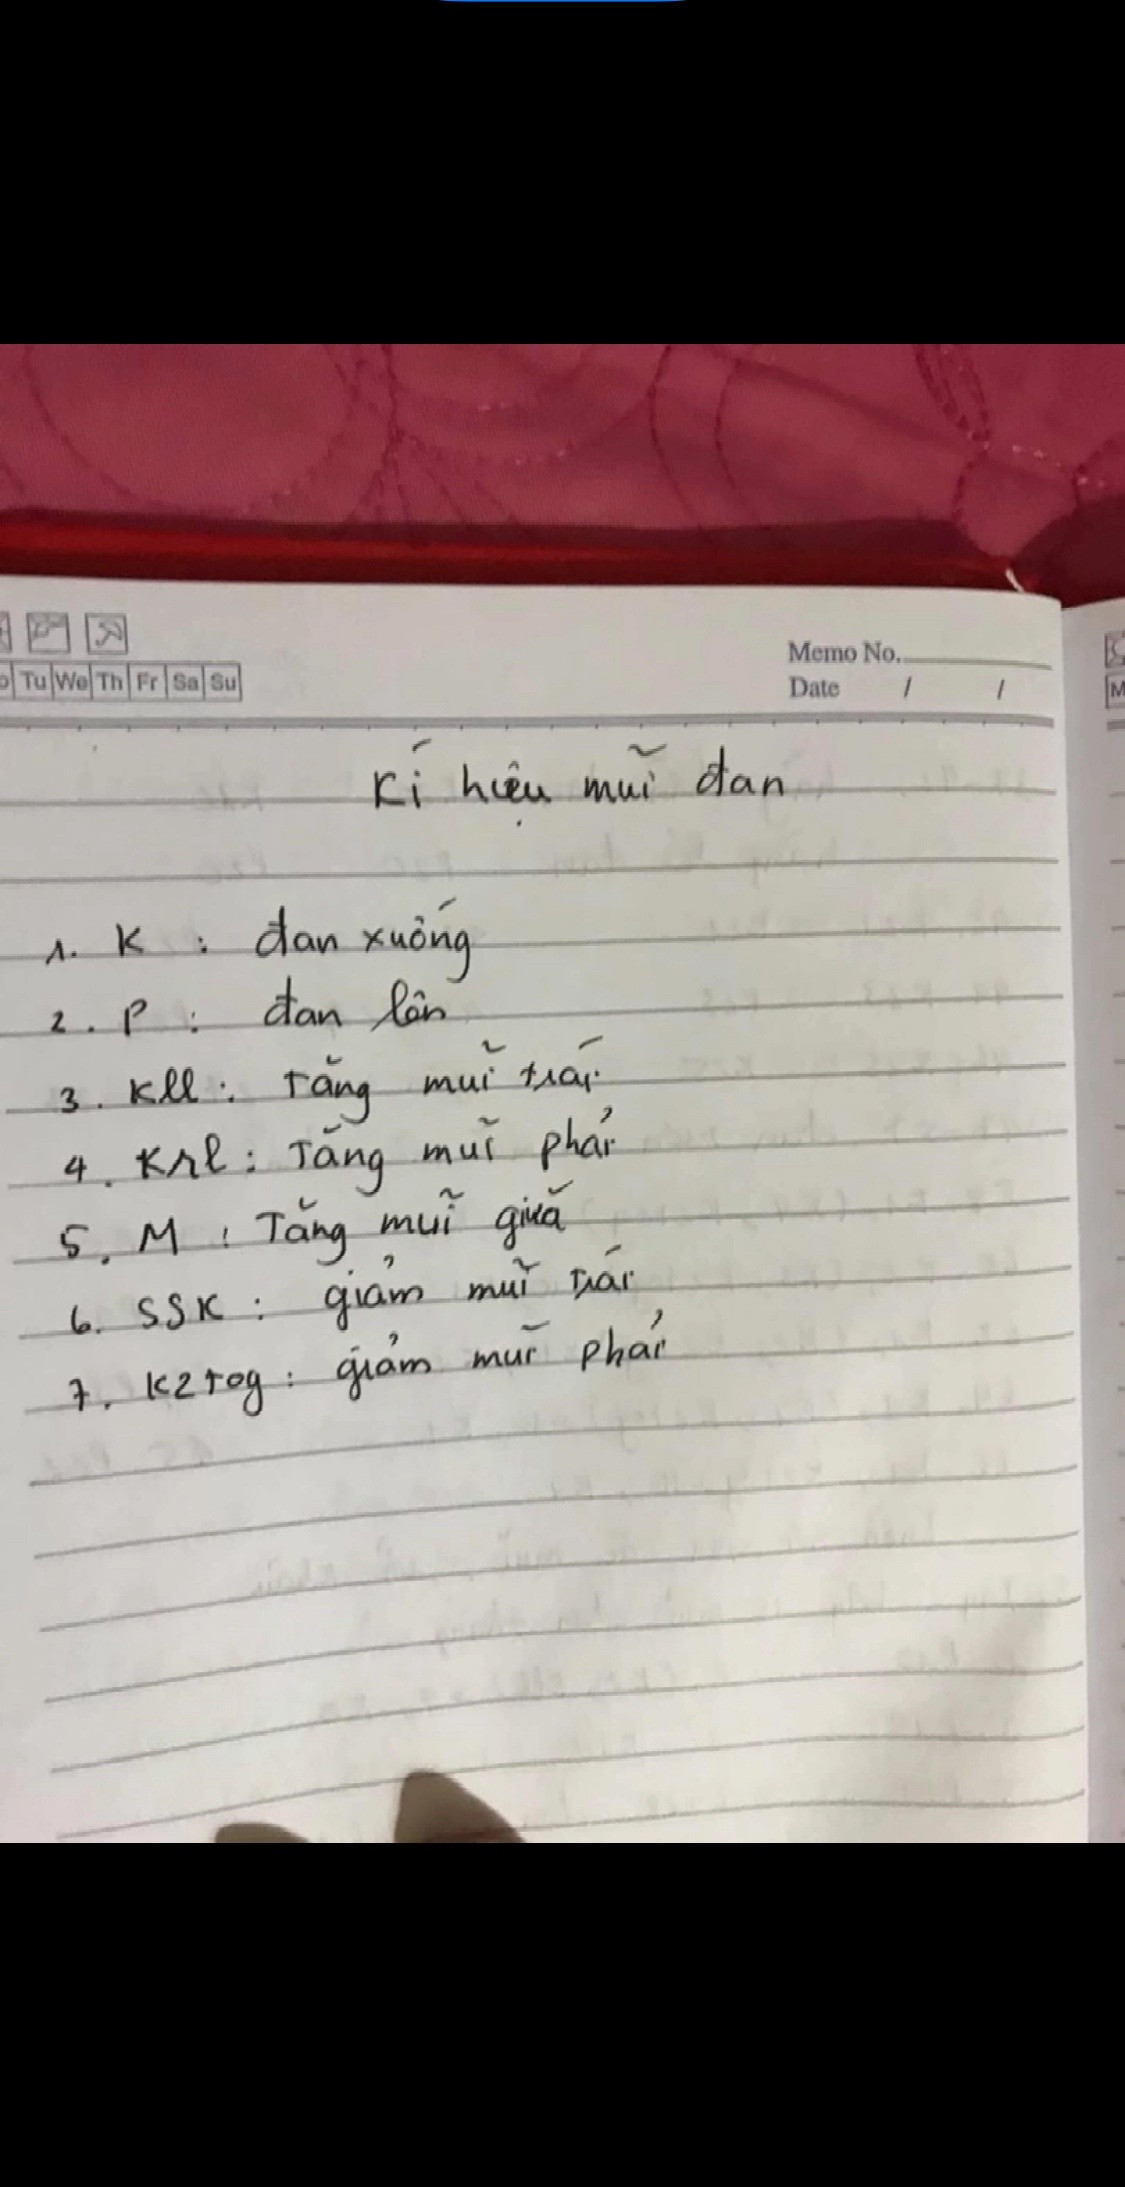 Tu We Th Fr Sa Su
Memo No.
Date / /
Kí hiệu mũi đan
1. K : đan xuống
2. P : đan lên
3. Kll : Tăng mũi trái
4. Krl : Tăng mũi phải
5. M : Tăng mũi giữa
6. SSK : giảm mũi trái
7. K2tog : giảm mũi phải